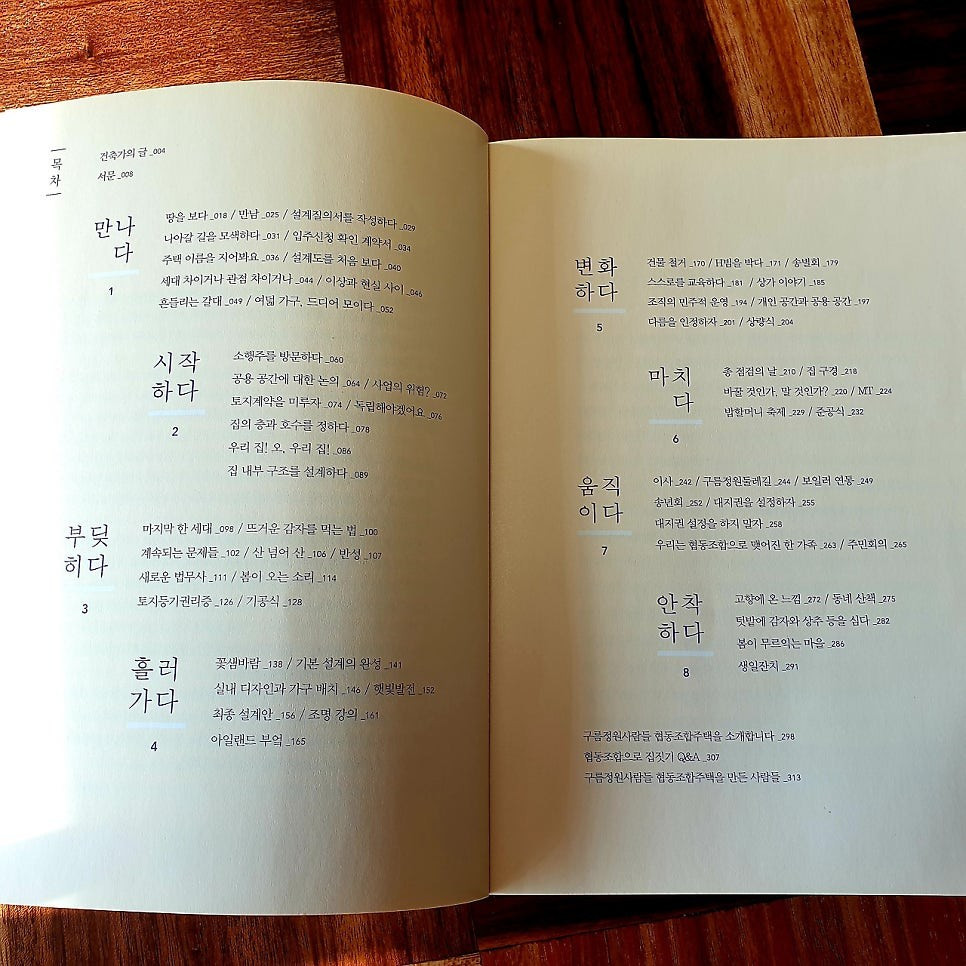 목차
건축가의 글 _004
서문 _008
만나
다
1
땅을 보다 _018 / 만남 _025 / 설계질의서를 작성하다 _029
나아갈 길을 모색하다 _031 / 입주신청 확인 계약서 _034
주택 이름을 지어봐요 _036 / 설계도를 처음 보다 _040
세대 차이거나 관점 차이거나 _044 / 이상과 현실 사이 _046
흔들리는 갈대 _049 / 여덟 가구, 드디어 모이다 _052
시작
하다
2
소행주를 방문하다 _060
공용 공간에 대한 논의 _064 / 사업의 위험? _072
토지계약을 미루자 _074 / 독립해야겠어요 _076
집의 층과 호수를 정하다 _078
우리 집! 오, 우리 집! _086
집 내부 구조를 설계하다 _089
부딪
히다
3
마지막 한 세대 _098 / 뜨거운 감자를 먹는 법 _100
계속되는 문제들 _102 / 산 넘어 산 _106 / 반성 _107
새로운 법무사 _111 / 봄이 오는 소리 _114
토지등기권리증 _126 / 기공식 _128
흘러
가다
4
꽃샘바람 _138 / 기본 설계의 완성 _141
실내 디자인과 가구 배치 _146 / 햇빛발전 _152
최종 설계안 _156 / 조명 강의 _161
아일랜드 부엌 _165
변화
하다
5
건물 철거 _170 / H빔을 박다 _171 / 송별회 _179
스스로를 교육하다 _181 / 상가 이야기 _185
조직의 민주적 운영 _194 / 개인 공간과 공용 공간 _197
다름을 인정하자 _201 / 상량식 _204
마치
다
6
총 점검의 날 _210 / 집 구경 _218
바꿀 것인가, 말 것인가? _220 / MT _224
밤할머니 축제 _229 / 준공식 _232
움직
이다
7
이사 _242 / 구름정원둘레길 _244 / 보일러 연통 _249
송년회 _252 / 대지권을 설정하자 _255
대지권 설정을 하지 말자 _258
우리는 협동조합으로 맺어진 한 가족 _263 / 주민회의 _265
안착
하다
8
고향에 온 느낌 _272 / 동네 산책 _275
텃밭에 감자와 상추 등을 심다 _282
봄이 무르익는 마을 _286
생일잔치 _291
구름정원사람들 협동조합주택을 소개합니다 _298
협동조합으로 집짓기 Q&A _307
구름정원사람들 협동조합주택을 만든 사람들 _313